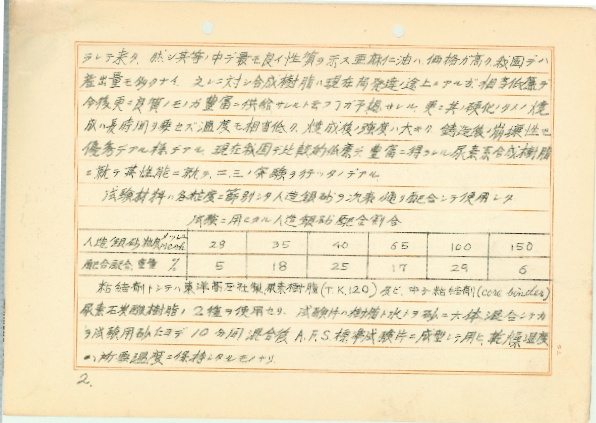 ラレテ来タ。然シ其等ノ中デ最モ良イ性質ヲ示ス亜麻仁油ハ価格ガ高ク我国デハ
産出量モ多クナイ。之ニ対シ合成樹脂ハ現在尚発達ノ途上ニアルガ、相当低廉デ
今後更ニ良質ノモノガ豊富ニ供給サレルト云フ事ガ予想サレル。更ニ其ノ硬化ノタメノ焼
成ハ長時間ヲ要セズ温度モ相当低ク、焼成後ノ強度ハ大キク鋳造後ノ崩壊性モ
優秀デアル様デアル。現在我国デ比較的低廉デ豊富ニ得ラレル尿素系合成樹脂
ニ就テ其性能ニ就テ、二、三ノ実験ヲ行ッタノデアル
試験材料ハ各粒度ニ篩別シタ人造銀砂ヲ次表ノ通リ配合シテ使用シタ
試験ニ用ヒタル人造銀砂配合割合
人造銀砂粒度 メッシュ mesh 28 35 40 65 100 150
配合割合、重量 % 5 18 25 17 29 6
粘結剤トシテハ東洋高圧社製尿素樹脂(T.K.120)及ビ中子粘結剤(core binder)
尿素石炭酸樹脂ノ2種ヲ使用セリ。試験片ハ樹脂ト水トヲ砂ニ
試験用砂 10分間混合後A.F.S.標準試験片ニ成型シテ用ヒ、乾燥温度
ハ所要温度ニ保持シタルモノナリ
2.